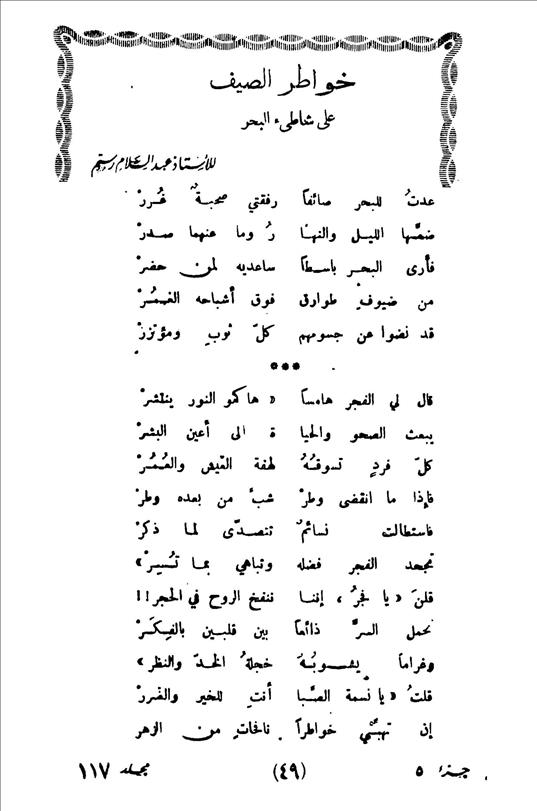 خواطر الصيف
على شاطىء البحر
للأستاذ عبد السلام رستم
عدتُ للبحر صائفاً رفقتي صحبةٌ غُررْ
ضمَّها الليل والنهـا رُ وما عنهما صدرْ
فأرى البحر باسطاً ساعديه لمن حضرْ
من ضيوفٍ طوارق فوق أشباحه الغُمُرْ
قد نضوا عن جسومهم كلّ ثوبٍ ومؤتزرْ
***
قال لي الفجر هامساً « هاكمو النور ينتشرْ
يبعث الصحو والحيا ة الى أعين البشرْ
كلّ فردٍ تسوقُهُ لهفة العيش والعُمُرْ
فإذا ما انقضى وطرْ شبَّ من بعده وطرْ
فاستطالت نسائمٌ تتصدّى لما ذكرْ
تجحد الفجر فضله وتباهي بما تُسِيرْ»
قلنَ « يا فجرُ ، إننا ننفخ الروح في الحجر!!
نحمل السرَّ ذائعاً بين قلبين بالفِكَرْ
وغراماً يشوبُهُ خجلةُ الخدّ والنظر»
قلتُ « يا نسمة الصَّبا أنتِ للخير والضررْ
إن تهبّي خواطراً نافحاتٍ من الزهر
جزء ٥ (٤٩) مجلد ١١٧